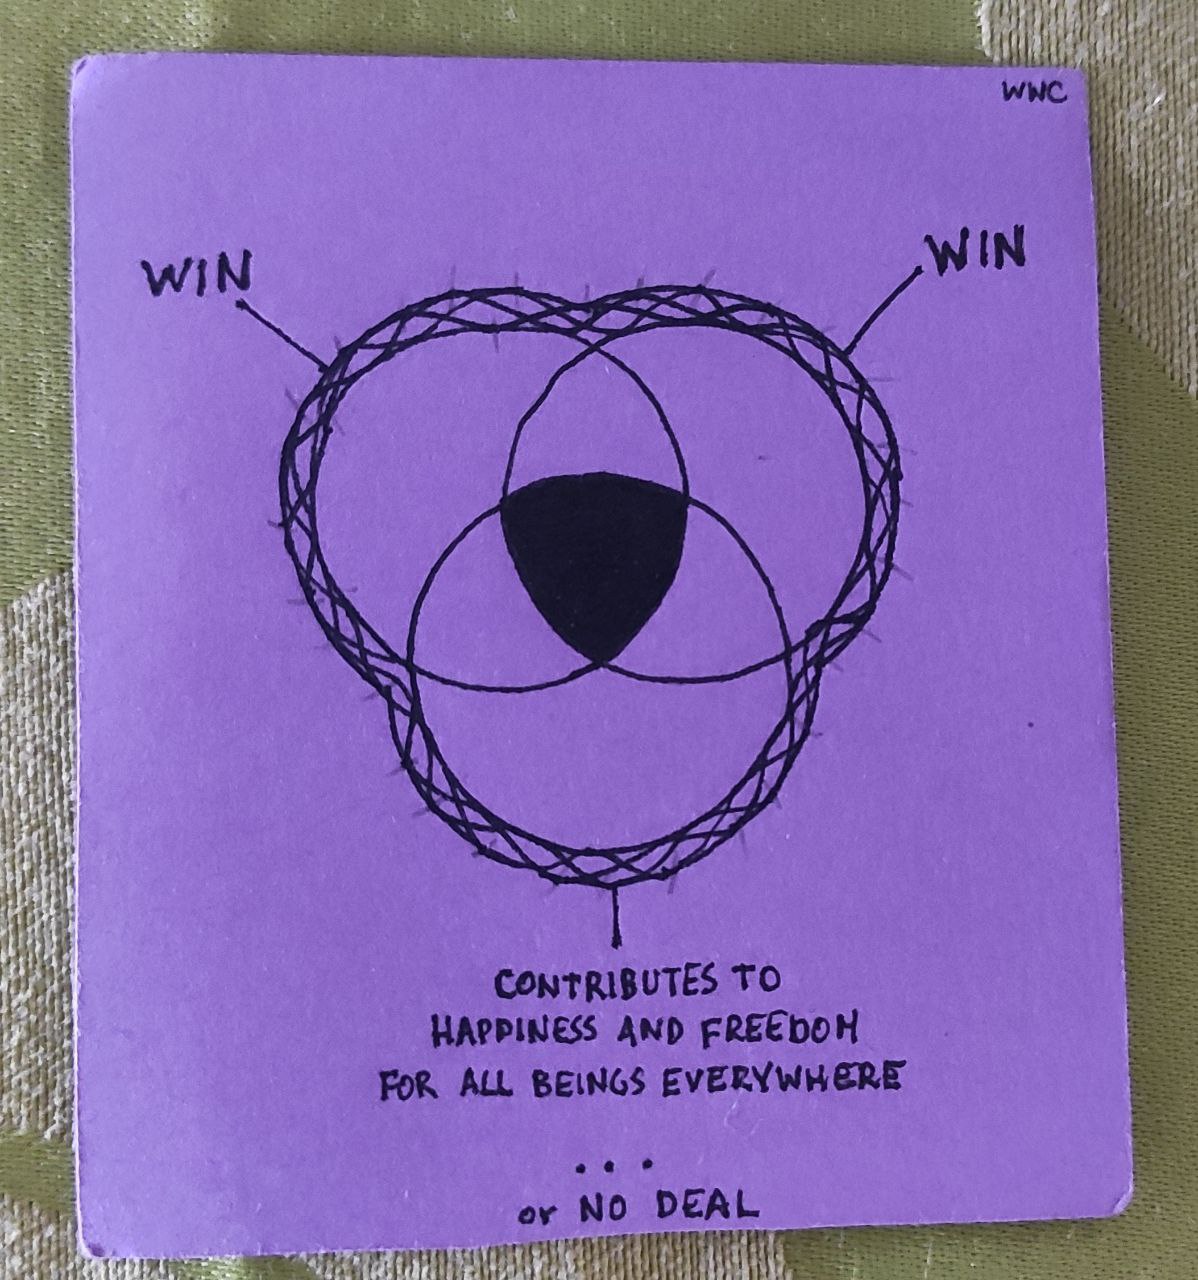 WWC
WIN
WIN
CONTRIBUTES TO
HAPPINESS AND FREEDOM
FOR ALL BEINGS EVERYWHERE
...
or NO DEAL